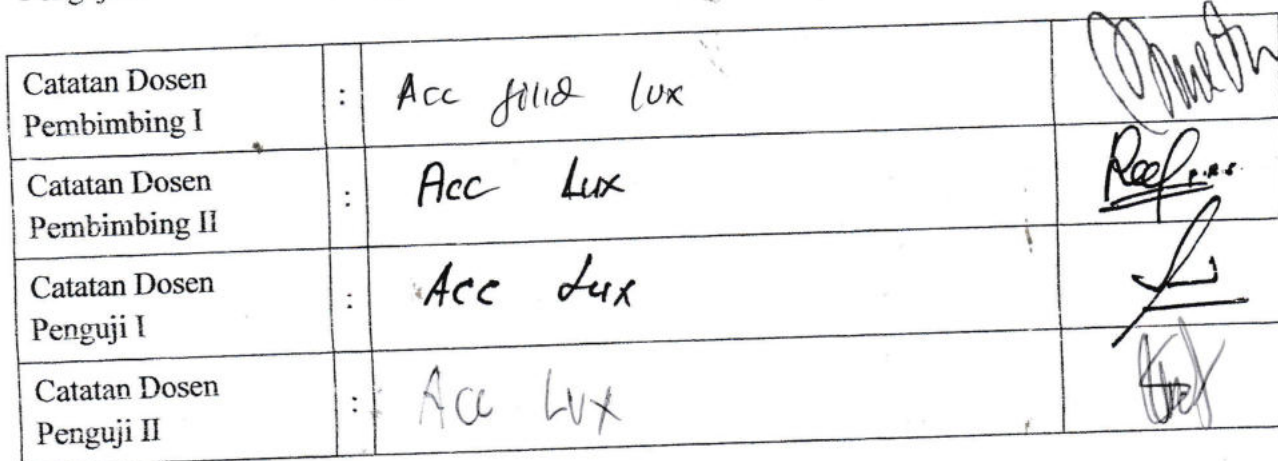 Catatan Dosen
Pembimbing I
:
Acc jilid lux
Catatan Dosen
Pembimbing II
:
Acc Lux
Catatan Dosen
Penguji I
:
Acc Lux
Catatan Dosen
Penguji II
:
Acc Lux